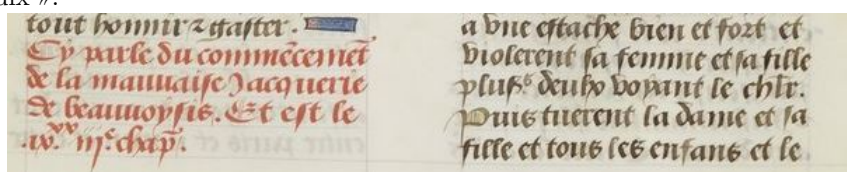 aix ».
tout honnir ⁊ gaster.
Cy parle du commẽcemẽt
de la mauuaise Jacquerie
de beauuoysis. Et est le
.ix.xx iije. chap̃.
a vne estache bien et fort et
violerent sa femme et sa fille
voyant le chlr̃.
Puis tuerent la dame et sa
fille et tous les enfans et le